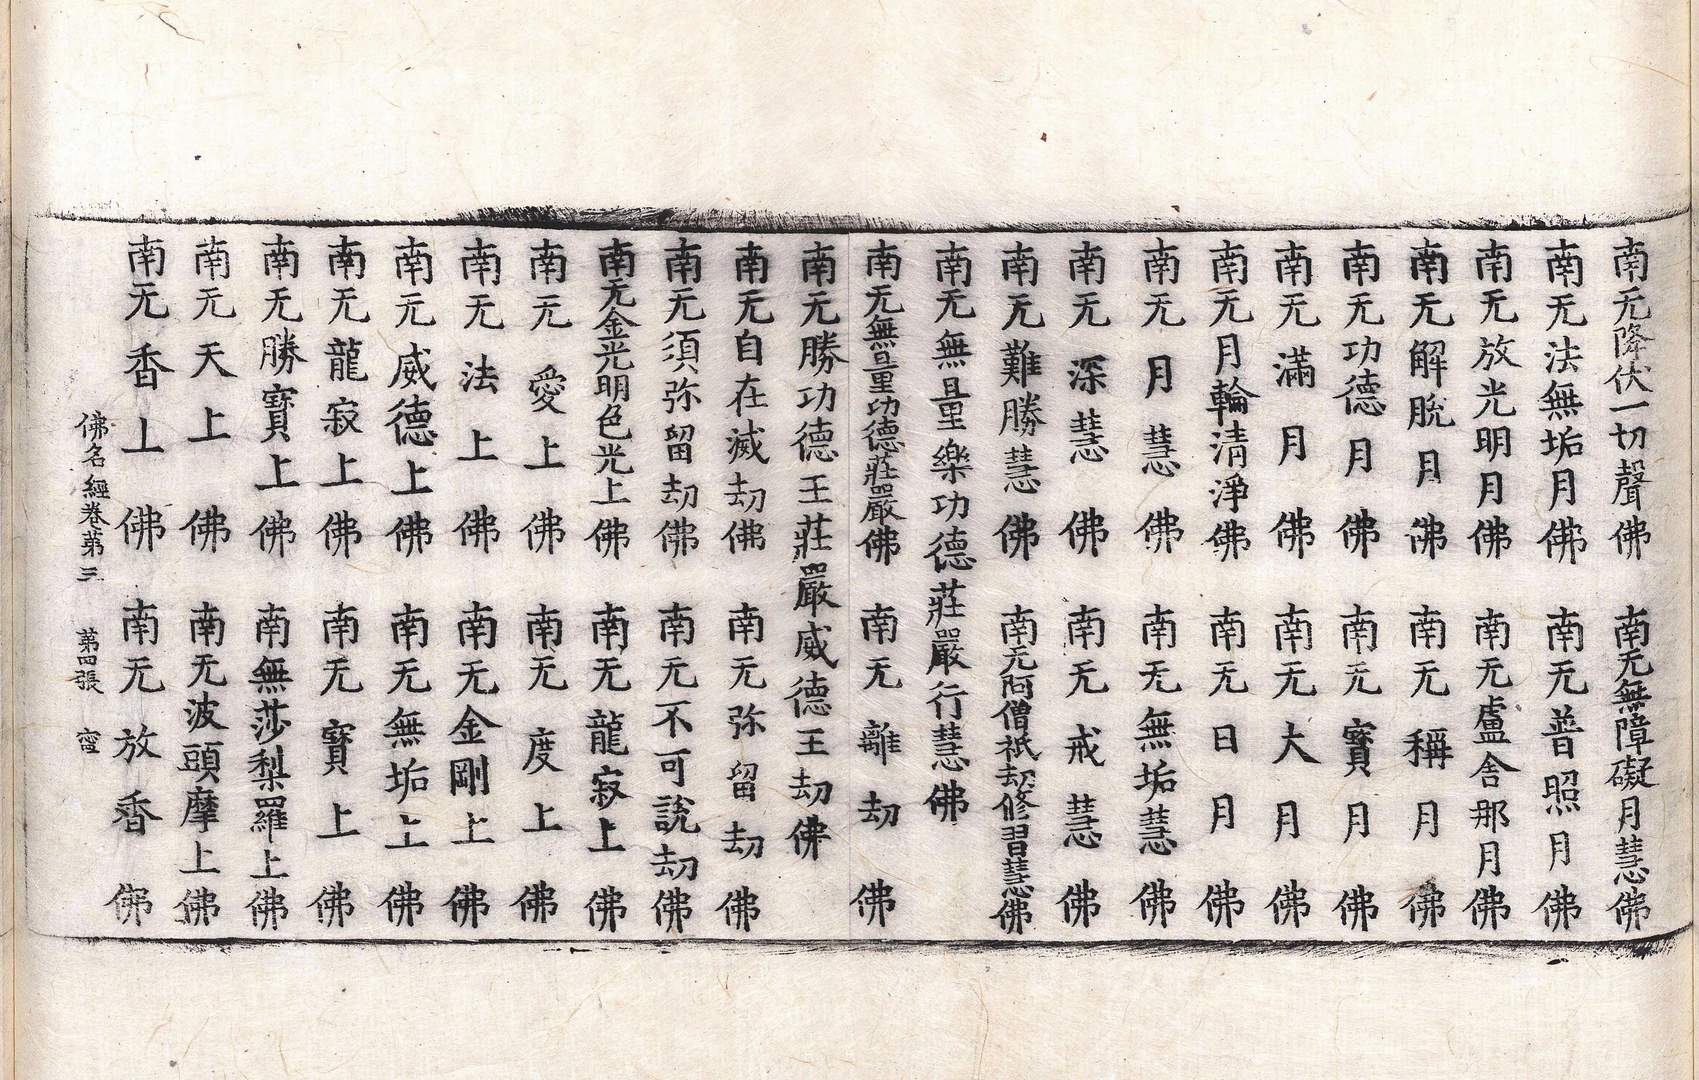 南无降伏一切聲佛　南无無障礙月慧佛
南无法無垢月佛　南无普照月佛
南无放光明月佛　南无盧舍那月佛
南无解脫月佛　南无稱月佛
南无功德月佛　南无寶月佛
南无滿月佛　南无大月佛
南无月輪清淨佛　南无日月佛
南无月慧佛　南无無垢慧佛
南无深慧佛　南无戒慧佛
南无難勝慧佛　南无阿僧祇劫修習慧佛
南无無量樂功德莊嚴行慧佛
南无無量功德莊嚴佛　南无離劫佛
南无勝功德王莊嚴威德王劫佛
南无自在滅劫佛　南无弥留劫佛
南无須弥留劫佛　南无不可說劫佛
南无金光明色光上佛　南无龍寂上佛
南无愛上佛　南无度上佛
南无法上佛　南无金剛上佛
南无威德上佛　南无無垢上佛
南无龍寂上佛　南无寶上佛
南无勝寶上佛　南無莎梨羅上佛
南无天上佛　南无波頭摩上佛
南无香上佛　南无放香佛
佛名經卷第三　第四張